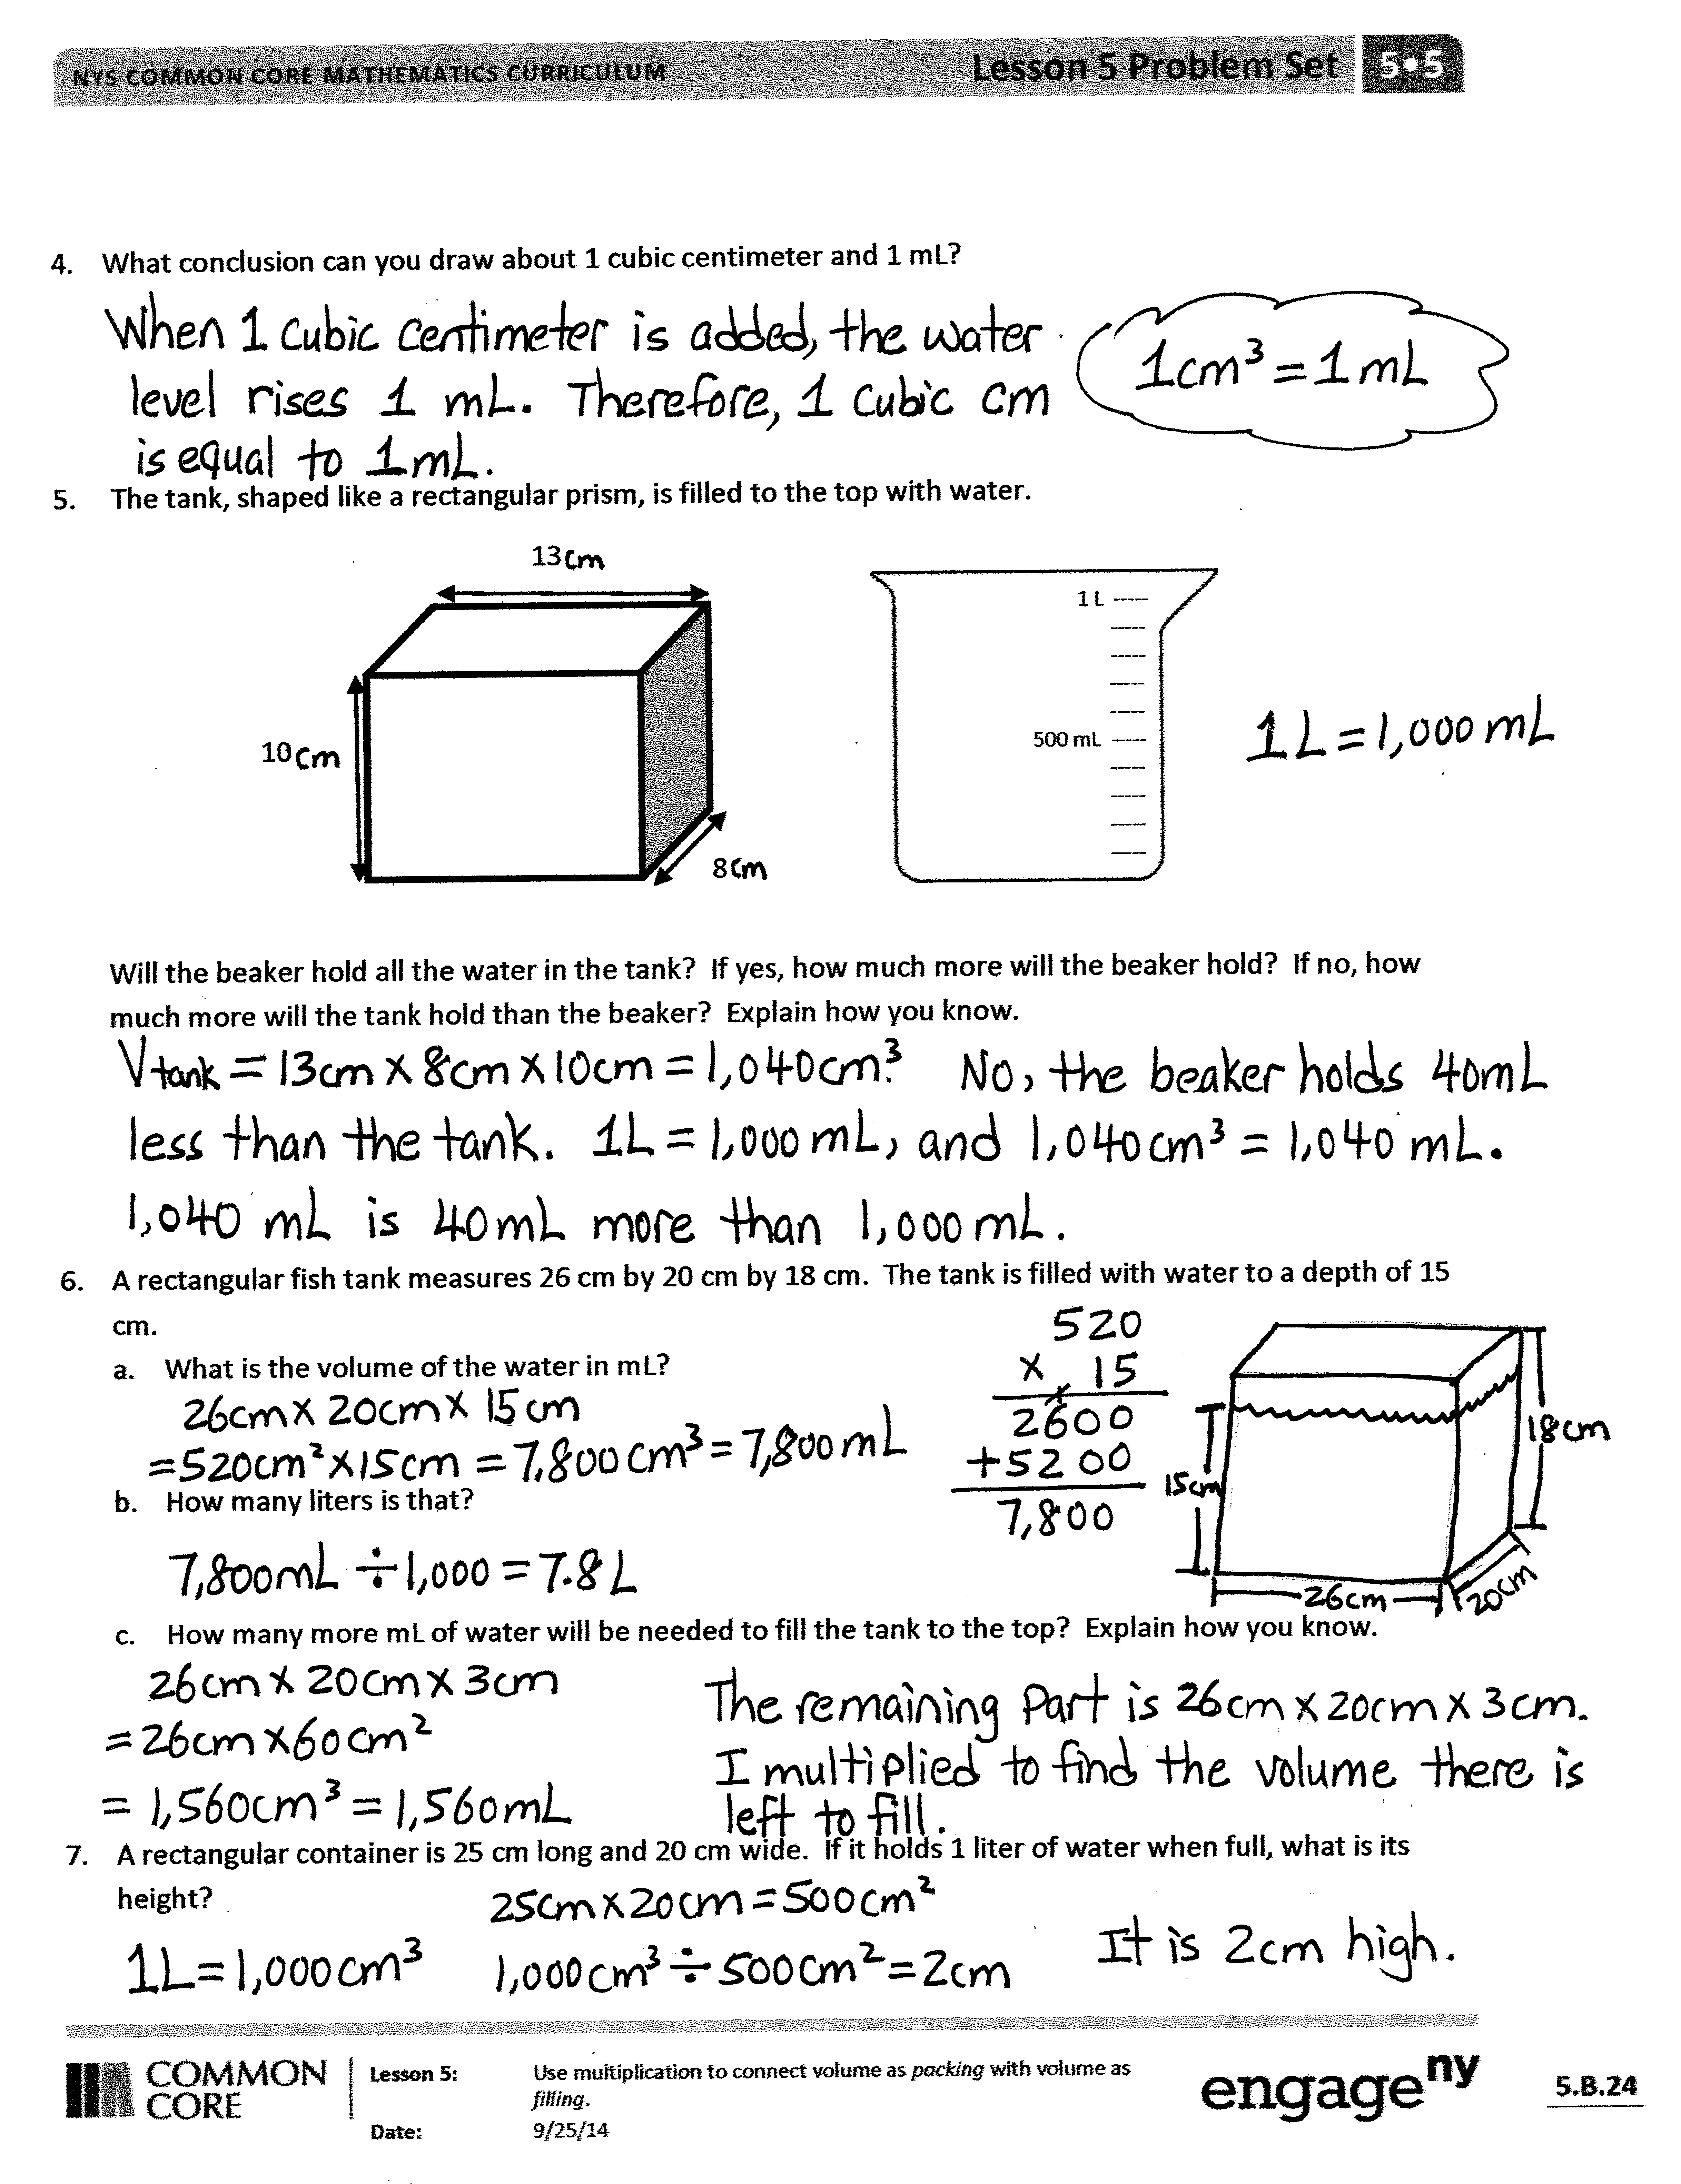 NYS COMMON CORE MATHEMATICS CURRICULUM
Lesson 5 Problem Set
5•5
4. What conclusion can you draw about 1 cubic centimeter and 1 mL?
When 1 cubic centimeter is added, the water
level rises 1 mL. Therefore, 1 cubic cm
is equal to 1mL.
1cm³ = 1 mL
5. The tank, shaped like a rectangular prism, is filled to the top with water.
13cm
10cm
8cm
1 L
500 mL
1 L = 1,000 mL
Will the beaker hold all the water in the tank? If yes, how much more will the beaker hold? If no, how
much more will the tank hold than the beaker? Explain how you know.
Vtank = 13cm x 8cm x 10cm = 1,040cm³. No, the beaker holds 40mL
less than the tank. 1L = 1,000 mL, and 1,040cm³ = 1,040 mL.
1,040 mL is 40mL more than 1,000 mL.
6. A rectangular fish tank measures 26 cm by 20 cm by 18 cm. The tank is filled with water to a depth of 15
cm.
a. What is the volume of the water in mL?
26cm x 20cm x 15cm
= 520cm² x 15cm = 7,800cm³ = 7,800 mL
520
x 15
2600
+5200
7,800
15cm
18cm
26cm
20cm
b. How many liters is that?
7,800mL ÷ 1,000 = 7.8 L
c. How many more mL of water will be needed to fill the tank to the top? Explain how you know.
26cm x 20cm x 3cm
= 26cm x 60cm²
= 1,560cm³ = 1,560mL
The remaining part is 26cm x 20cm x 3cm.
I multiplied to find the volume there is
left to fill.
7. A rectangular container is 25 cm long and 20 cm wide. If it holds 1 liter of water when full, what is its
height?
25cm x 20cm = 500cm²
1L = 1,000cm³
1,000cm³ ÷ 500cm² = 2cm
It is 2cm high.
COMMON
CORE
Lesson 5:
Use multiplication to connect volume as packing with volume as
filling.
Date:
9/25/14
engageny
5.B.24